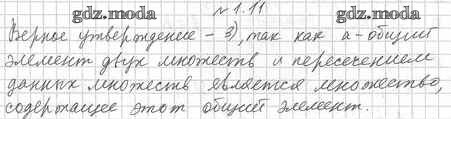 gdz.moda
№1.11
gdz.moda
Верное утверждение - 3), так как а-общий
элемент двух множеств и пересечением
данных множеств является множество,
содержащее этот общий элемент.